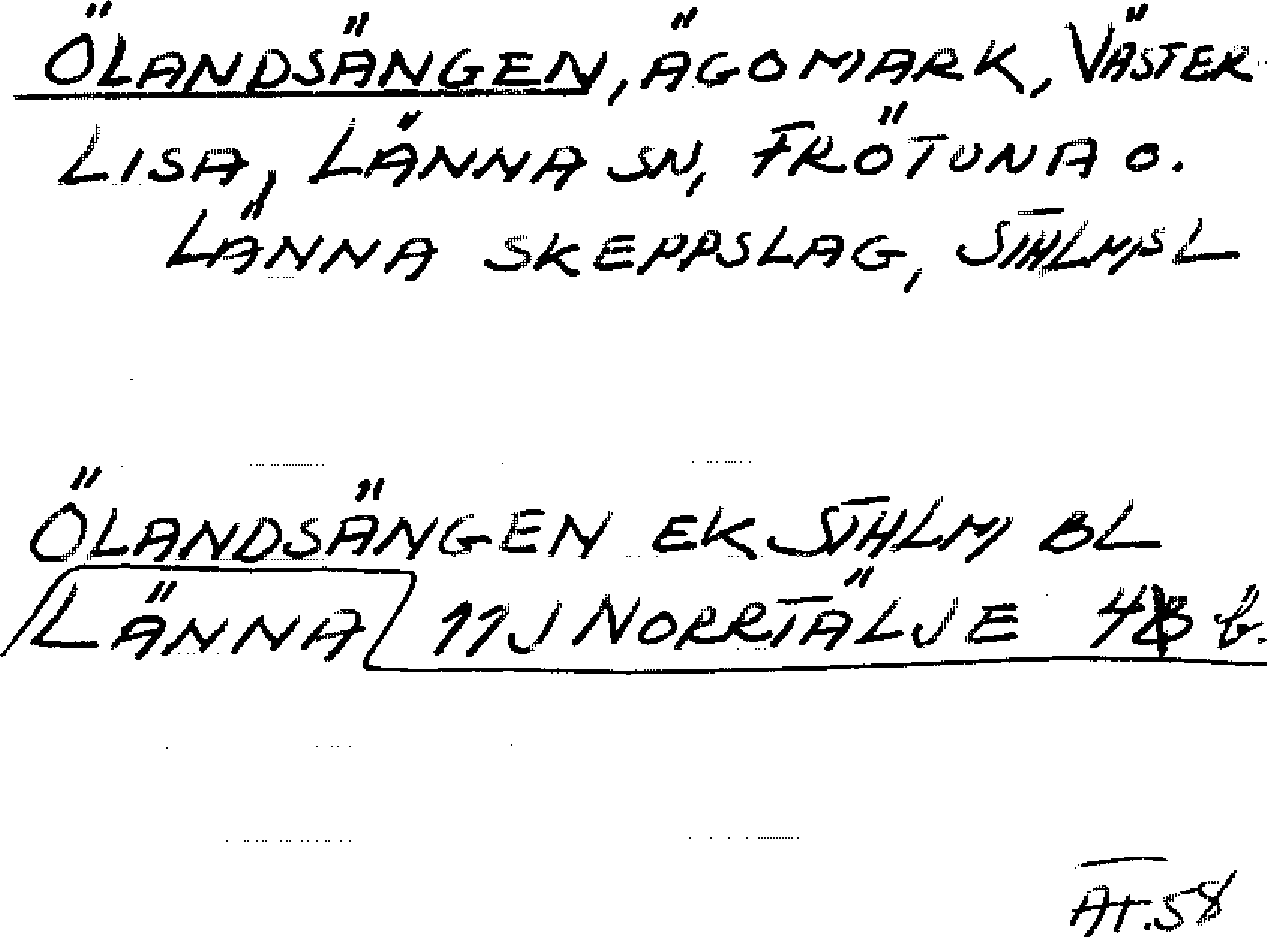 ÖLANDSÄNGEN, ÄGOMARK, VÄSTER-
LISA, LÄNNA SN, FRÖTUNA O.
LÄNNA SKEPPSLAG, STHLMSL
ÖLANDSÄNGEN EK STHLM BL
LÄNNA 11J NORRTÄLJE b.
AT.58